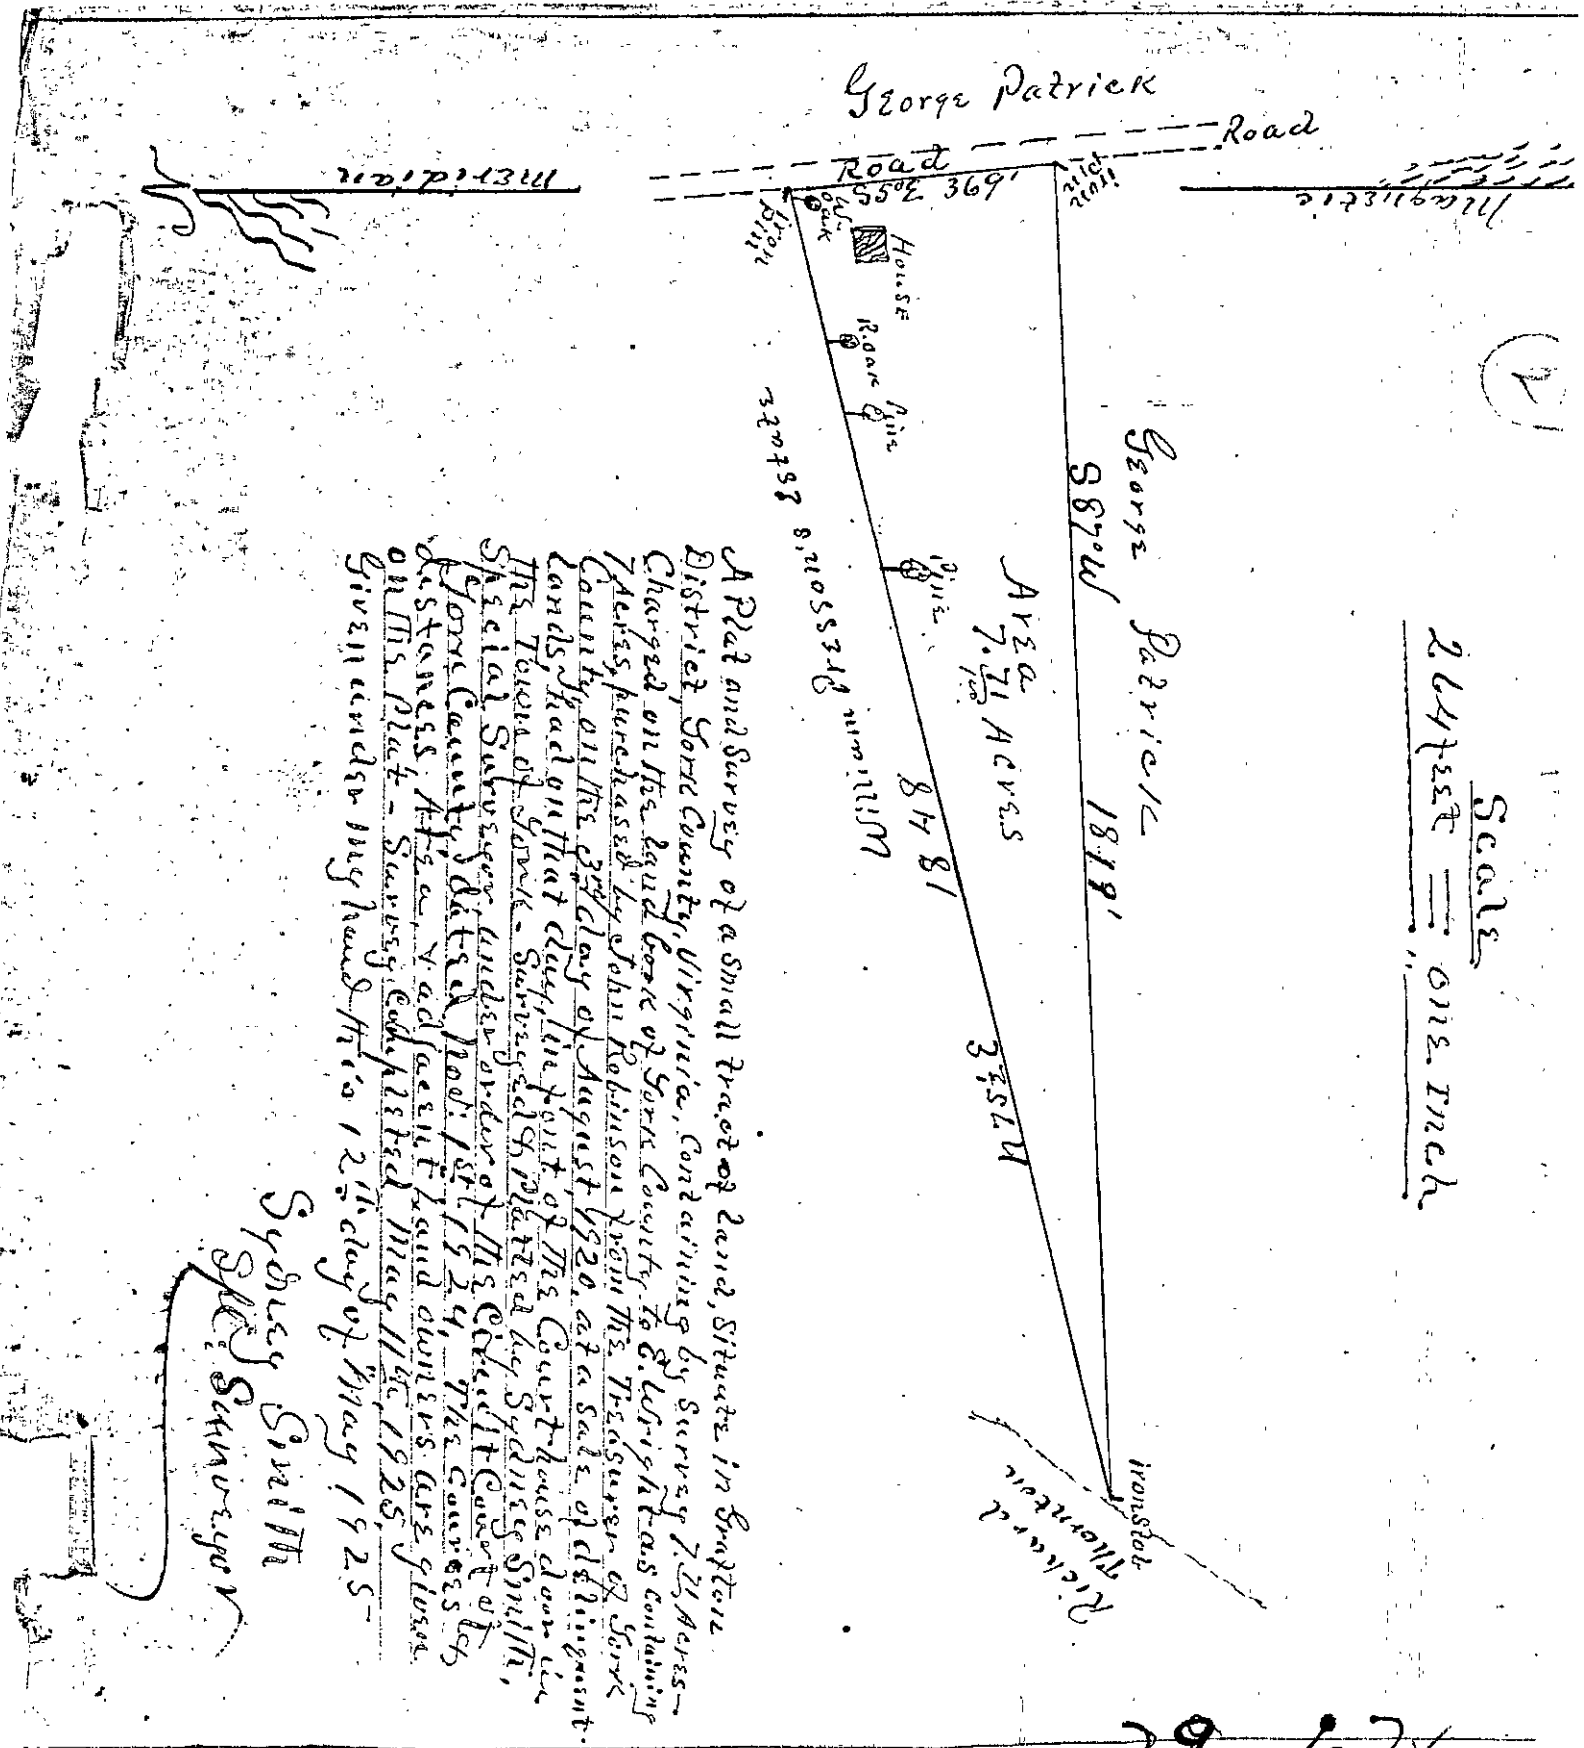 George Patrick
Road
Road
S5°E 369'
iron pin
iron pin
Magnetic
Meridian
W. oak
House
R. oak
Pine
Pine
George Patrick
S87°W 1819'
Area
7.71/100 Acres
1848
N75½E
William Presson's Estate
iron stob
Richard
Thornton
Scale
264 feet = one Inch
2
A Plat and Survey of a small tract of land, situate in Grafton
District, York County, Virginia, Containing by Survey 7.71 Acres-
Charged on the Land book of York County to E. Wright as containing
7 Acres, purchased by John Robinson from the Treasurer of York
County, on the 3rd day of August 1920, at a sale of delinquent
lands, had on that day, in front of the Court house door in
The Town of York - Surveyed & platted by Sydney Smith,
Special Surveyor, under order of the Circuit Court of
York County, dated Nov. 1st 1924. The Courses &
distances. Area, & adjacent land owners are given
on this Plat - Survey Completed May 11th, 1925,
Given under my hand this 12th day of May 1925-
Sydney Smith
Spl. Surveyor